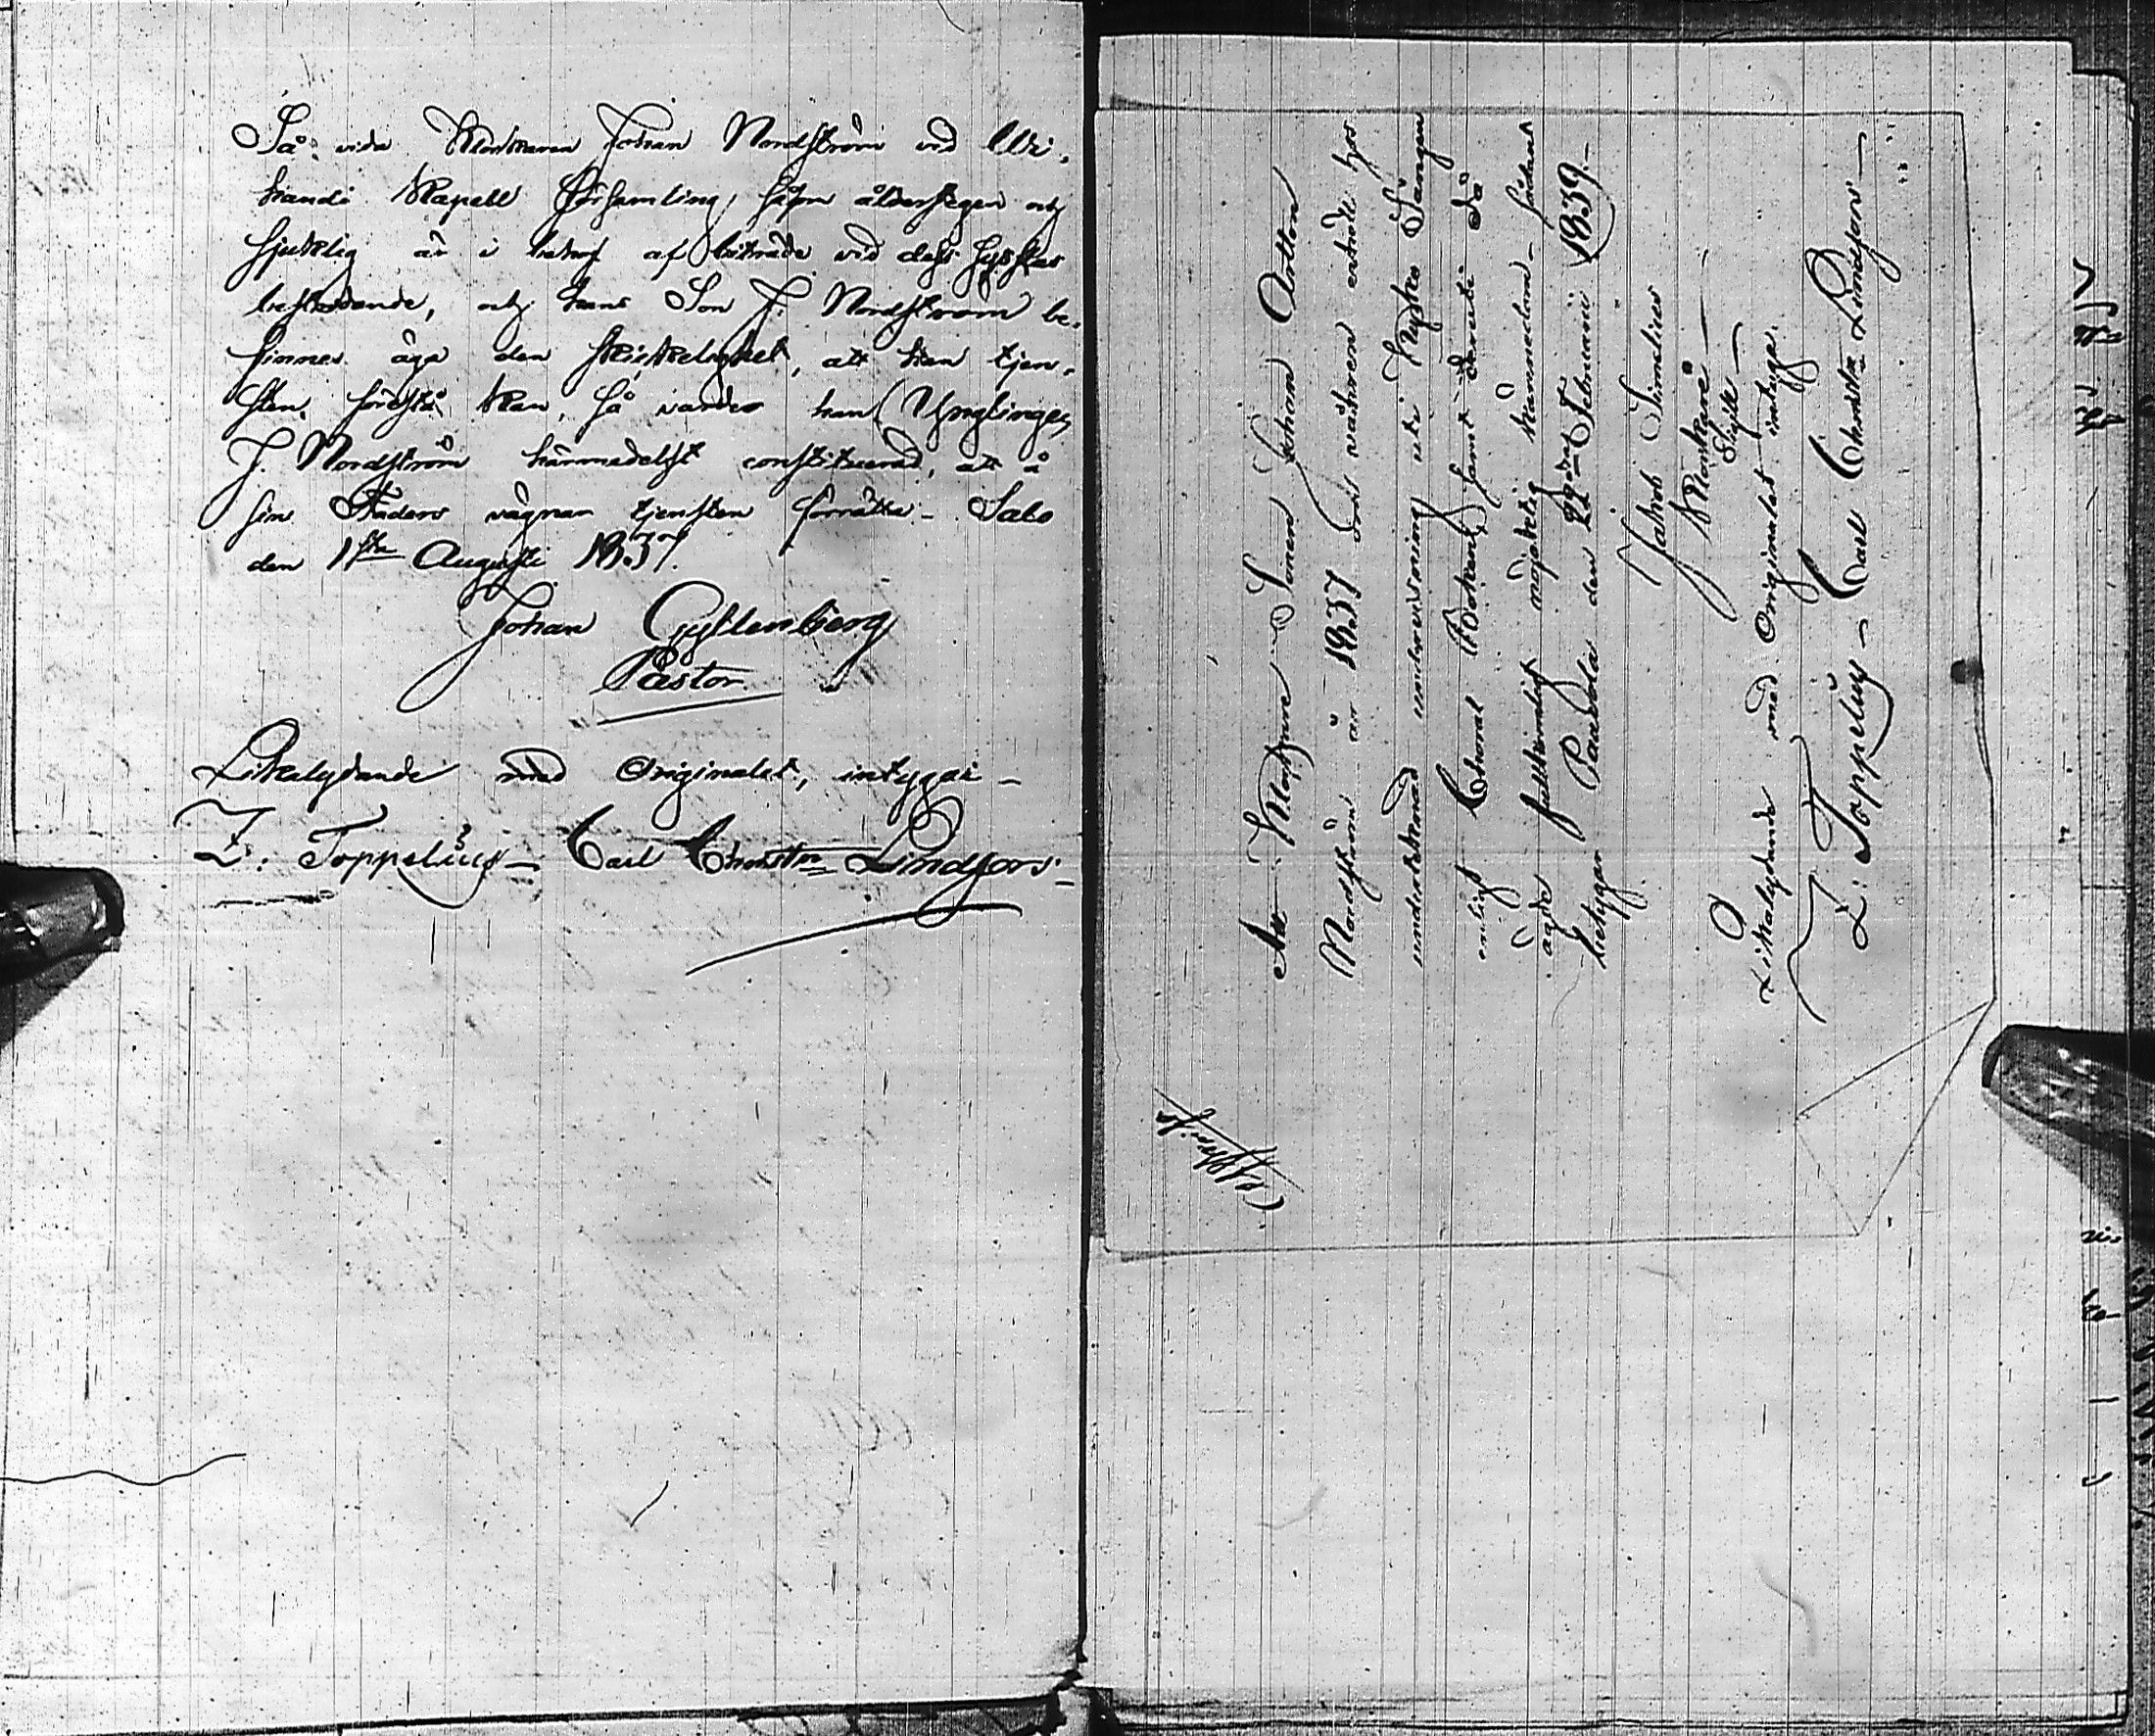 Så vida Klockaren Johan Nordström vid Wi-
handi Kapell Församling, såsom ålderstegen och
sjuklig är i behof af biträde vid dess sysslas
bestridande, och hans Son J. Nordström be-
finnes äga den skickelighet, att han tjen-
sten förestå kan, så varder han (Ynglingen
J. Nordström härmedelst constituerad, att å
sin Faders vägnar tjensten förrätta - Salo
den 1sta Augusti 1837.
Johan Gyllenberg
Pastor
Likalydande med Originalet, intygar -
Z. Toppelius - Carl Christn Lindfors -
Afskrift
Att Klockare Sonen Johan Anton
Nordström år 1837 om våren erhöll hos
undertecknad undervisning uti Kyrko Sången
enligt Choral Boken, samt deruti då
ägde fullkomligt nöjaktig kännedom - sådant
betygar Paavola den 22dra Februarii 1839 -
Jakob Simelius
Klockare
Likalydande med Originalet intyga.
Z. Toppelius - Carl Christn Lindfors -